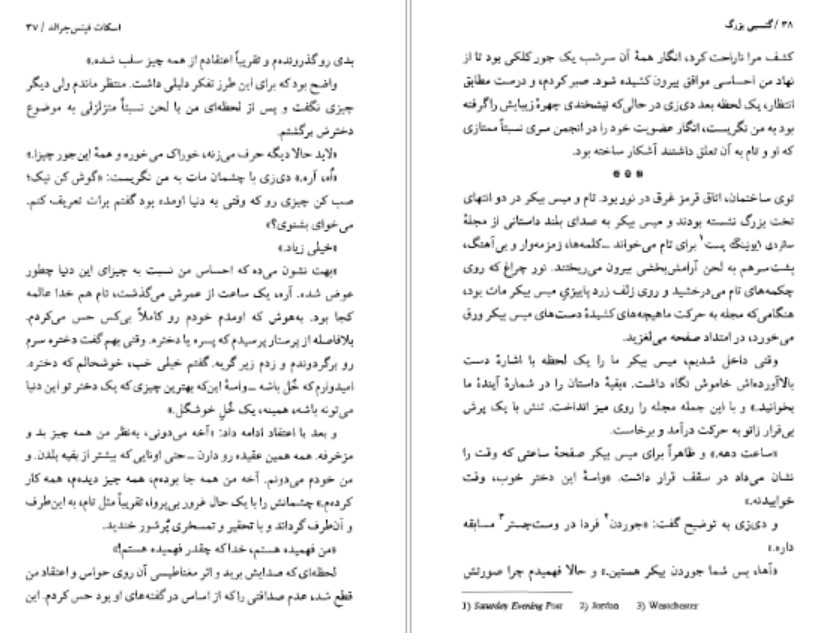 اسکات فیتس‌جرالد / ۳۷
بدی روگذروندهم و تقریباً اعتقادم از همه چیز سلب شده.»
واضح بود که برای این طرز تفکر دلیلی داشت. منتظر ماندم ولی دیگر
چیزی نگفت و پس از لحظه‌ای من با لحن نسبتاً متزلزلی به موضوع
دخترش برگشتم.
«لابد حالا دیگه حرف می‌زنه، خوراک می‌خوره و همهٔ این‌جور چیزا.»
«اُه، آره.» دی‌زی با چشمان مات به من نگریست: «گوش کن نیک؛
صب کن چیزی رو که وقتی به دنیا اومده بود گفتم برات تعریف کنم.
می‌خوای بشنوی؟»
«خیلی زیاد.»
«بهت نشون می‌ده که احساس من نسبت به چیزای این دنیا چطور
عوض شده. آره، یک ساعت از عمرش می‌گذشت، تام هم خدا عالمه
کجا بود. به‌هوش که اومدم خودم رو کاملاً بی‌کس حس می‌کردم.
بلافاصله از پرستار پرسیدم که پسره یا دختره. وقتی بهم گفت دختره سرم
رو برگردوندم و زدم زیر گریه. گفتم خیلی خب، خوشحالم که دختره.
امیدوارم که خُل باشه ـ واسهٔ این‌که بهترین چیزی که یک دختر تو این دنیا
می‌تونه باشه، همینه، یک خُلِ خوشگل.»
و بعد با اعتقاد ادامه داد: «آخه می‌دونی، به‌نظر من همه چیز بد و
مزخرفه. همه همین عقیده رو دارن ـ حتی اونایی که بیشتر از بقیه بلدن. و
من خودم می‌دونم. آخه من همه جا بودهم، همه چیز دیدهم، همه کار
کردهم.» چشمانش را با یک حال غرور بی‌پروا، تقریباً مثل تام، به این‌طرف
و آن‌طرف گرداند و با تحقیر و تمسخری پُرشور خندید.
«من فهمیده هستم، خدا که چقدر فهمیده هستم!»
لحظه‌ای که صدایش برید و اثر مغناطیسی آن روی حواس و اعتقاد من
قطع شد، عدم صداقتی را که از اساس در گفته‌های او بود حس کردم. این
۳۸ / گتسبی بزرگ
کشف مرا ناراحت کرد، انگار همهٔ آن سرشب یک جور کلکی بود تا از
نهاد من احساسی موافق بیرون کشیده شود. صبر کردم، و درست مطابق
انتظار، یک لحظه بعد دی‌زی در حالی‌که نیشخندی چهرهٔ زیبایش را گرفته
بود به من نگریست، انگار عضویت خود را در انجمن سری نسبتاً ممتازی
که او و تام به آن تعلق داشتند آشکار ساخته بود.
* * *
توی ساختمان، اتاق قرمز غرق در نور بود. تام و میس بیکر در دو انتهای
تخت بزرگ نشسته بودند و میس بیکر به صدای بلند داستانی از مجلهٔ
ساتردی ایونینگ پست۱ برای تام می‌خواند ـ کلمه‌ها، زمزمه‌وار و بی‌آهنگ،
پشت‌سرهم به لحن آرامش‌بخشی بیرون می‌ریختند. نور چراغ که روی
چکمه‌های تام می‌درخشید و روی زلف زرد پاییزیِ میس بیکر مات بود،
هنگامی‌که مجله به حرکت ماهیچه‌های کشیدهٔ دست‌های میس بیکر ورق
می‌خورد، در امتداد صفحه می‌لغزید.
وقتی داخل شدیم، میس بیکر ما را یک لحظه با اشارهٔ دست
بالاآورده‌اش خاموش نگاه داشت. «بقیهٔ داستان را در شمارهٔ آیندهٔ ما
بخوانید.» و با این جمله مجله را روی میز انداخت. تنش با یک پرش
بی‌قرار زانو به حرکت درآمد و برخاست.
«ساعت دهه.» و ظاهراً برای میس بیکر صفحهٔ ساعتی که وقت را
نشان می‌داد در سقف قرار داشت. «واسهٔ این دختر خوب، وقت
خوابیدنه.»
و دی‌زی به توضیح گفت: «جوردن۲ فردا در وست‌چستر۳ مسابقه
داره.»
«آها، پس شما جوردن بیکر هستین.» و حالا فهمیدم چرا صورتش
1) Saturday Evening Post 2) Jordan 3) Westchester